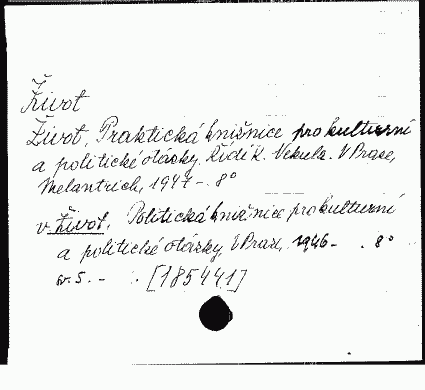 Život
Život. Praktická knižnice pro kulturní
a politické otázky. Řídí K. Vekula. V Praze,
Melantrich, 1947-. 8°
v. Život. Politická knižnice pro kulturní
a politické otázky, V Praze, 1946- . 8°
sv. 5. - :. [185441]